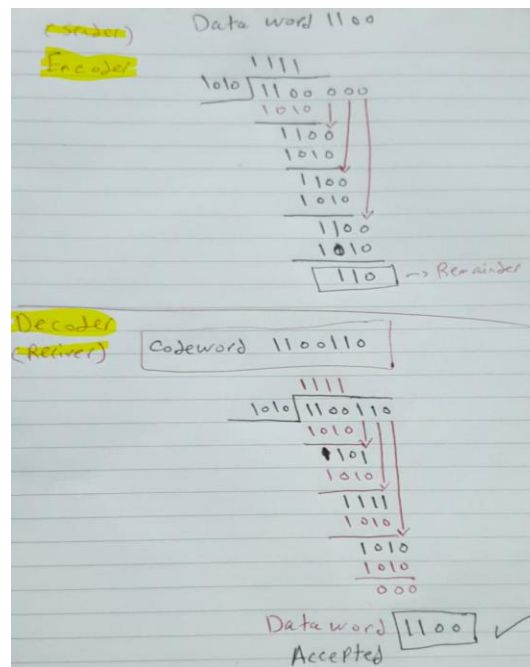 Data word 1100
(Sender)
Encoder
1111
1010 1100 000
1010
1100
1010
1100
1010
1100
1010
110 -> Remainder
Decoder
(Reciver)
Codeword 1100110
1111
1010 1100110
1010
1101
1010
1111
1010
1010
1010
000
Data word 1100 ✓
Accepted